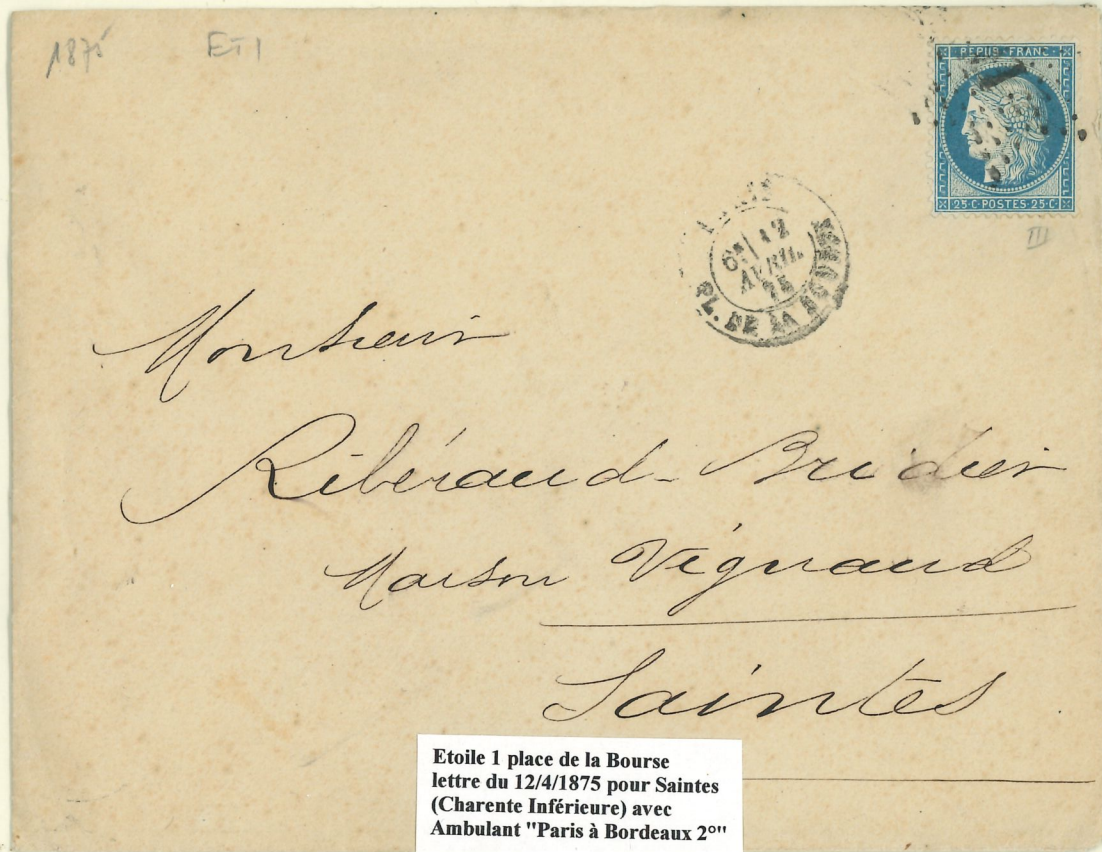 1875 ET 1
REPUB·FRANC·
1
25·C·POSTES·25·C·
III
PARIS
6E 12
AVRIL
75
PL. DE LA BOURSE
Monsieur
Ribéraud-Bridier
Maison Vignaud
Saintes
Etoile 1 place de la Bourse
lettre du 12/4/1875 pour Saintes
(Charente Inférieure) avec
Ambulant "Paris à Bordeaux 2°"